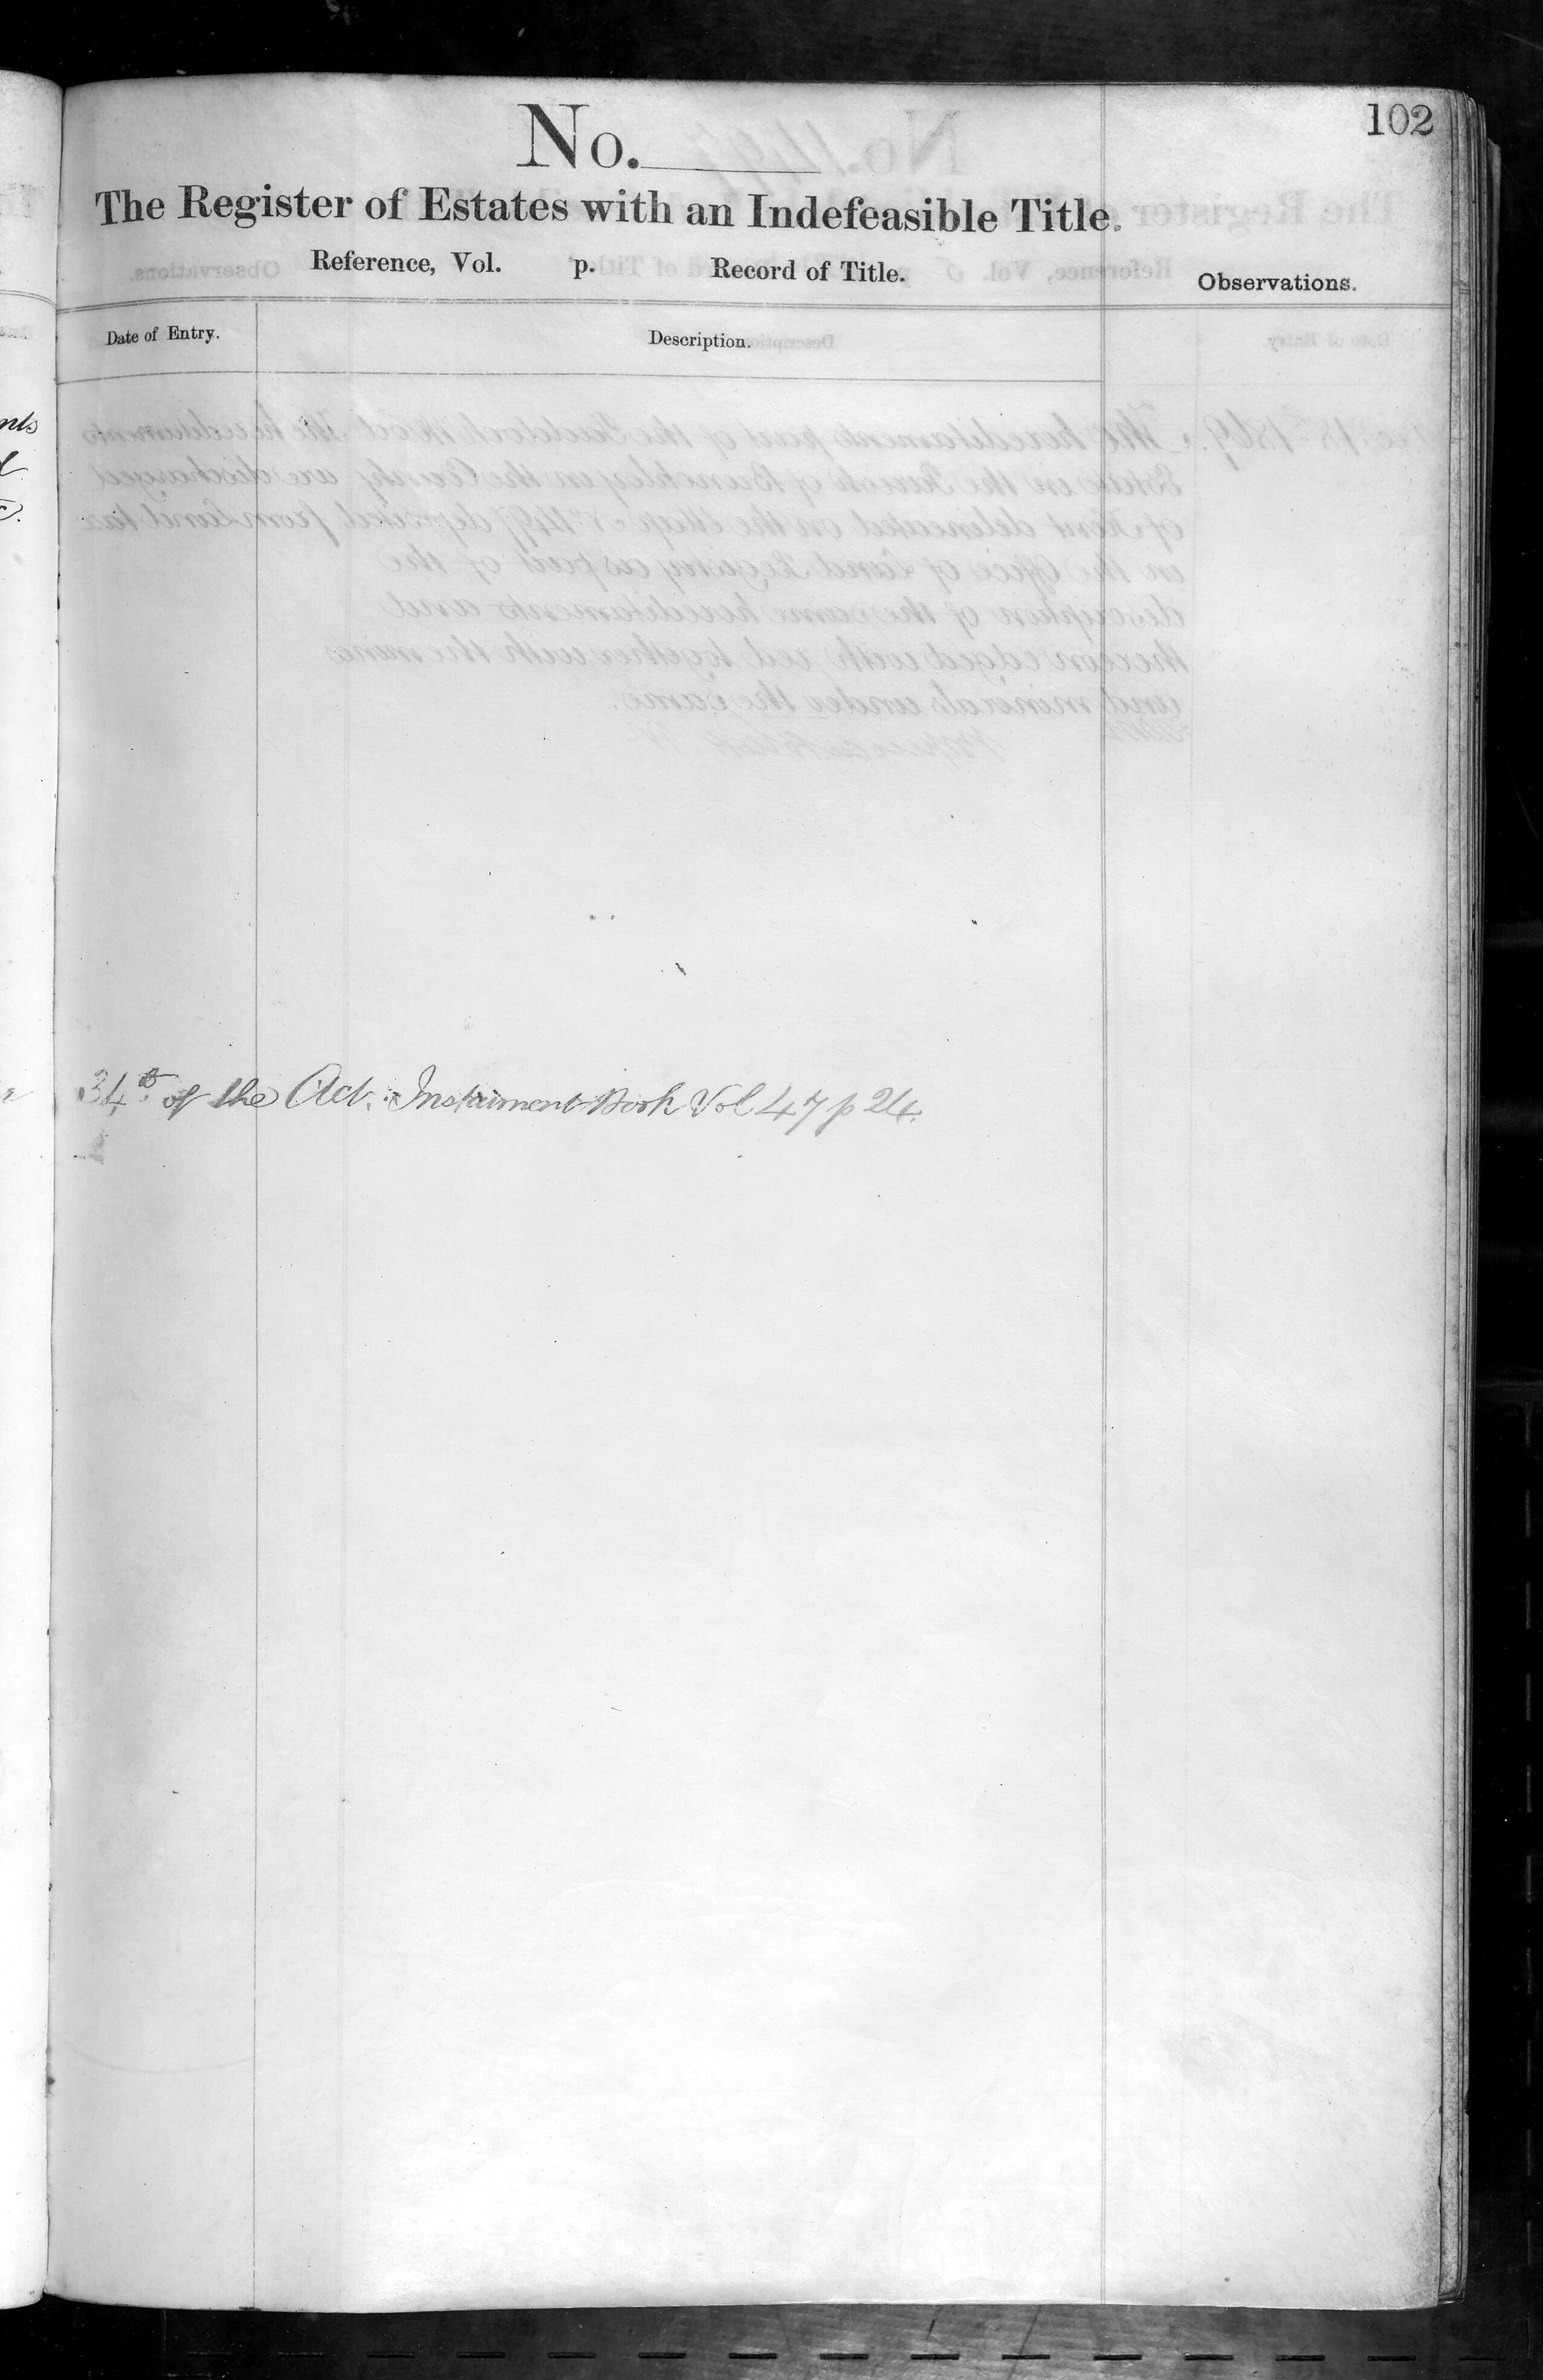 102
No.
The Register of Estates with an Indefeasible Title.
Reference, Vol. p. Record of Title.
Observations.
Date of Entry. Description.
34th of the Act. Instrument Book Vol 47 p 24.